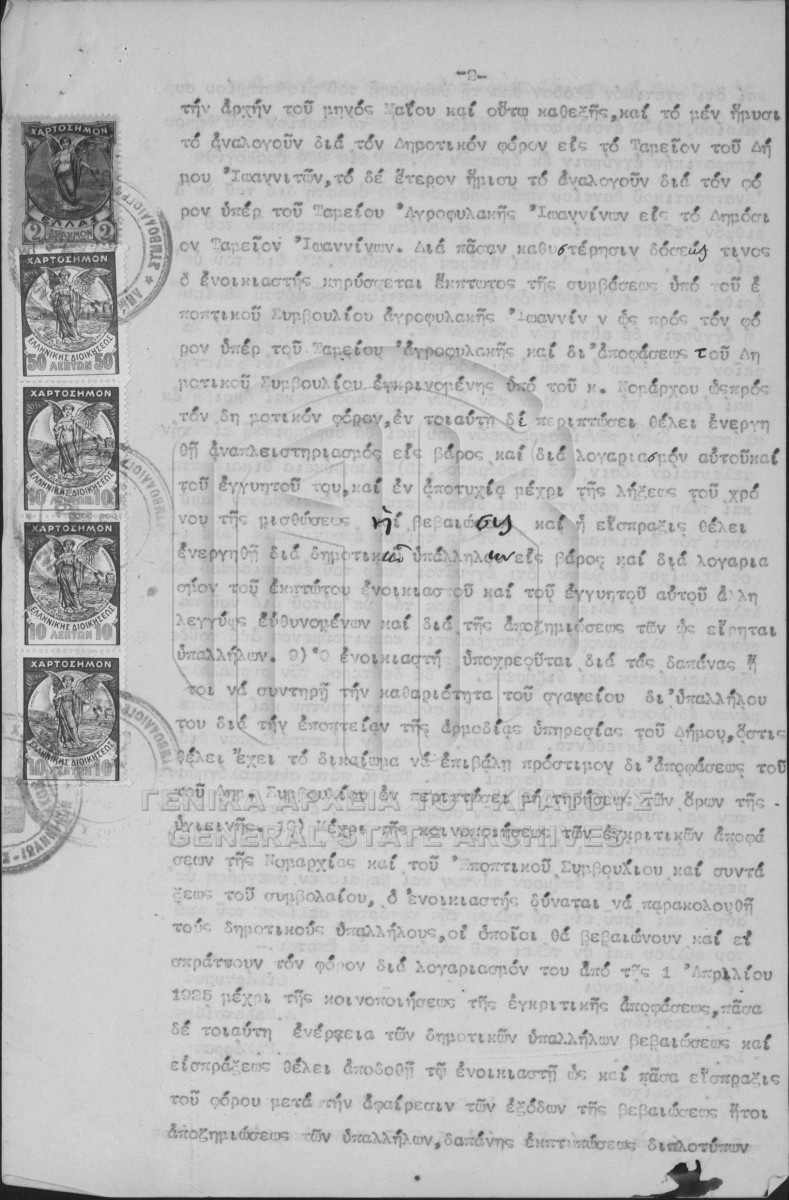 -2-
τήν ἀρχήν τοῦ μηνός Μαΐου καί οὕτω καθεξῆς,καί τό μέν ἥμυσι
τό ἀναλογοῦν διά τόν Δημοτικόν φόρον εἰς τό Ταμεῖον τοῦ Δή
μου Ἰωαννιτῶν,τό δέ ἕτερον ἥμισυ τό ἀναλογοῦν διά τόν φό
ρον ὑπέρ τοῦ Ταμείου Ἀγροφυλακῆς Ἰωαννίνων εἰς τό Δημόσι
ον Ταμεῖον Ἰωαννίνων. Διά πᾶσαν καθυστέρησιν δόσεώς τινος
ὁ ἐνοικιαστής κηρύσσεται ἔκπτωτος τῆς συμβάσεως ὑπό τοῦ ἐ
ποπτικοῦ Συμβουλίου ἀγροφυλακῆς Ἰωαννίν ν ὡς πρός τόν φό
ρον ὑπέρ τοῦ Ταμείου Ἀγροφυλακῆς καί δι'ἀποφάσεως τοῦ Δη
μοτικοῦ Συμβουλίου ἐγκρινομένης ὑπό τοῦ κ. Νομάρχου ὡςπρός
τόν δη μοτικόν φόρον,ἐν τοιαύτῃ δέ περιπτώσει θέλει ἐνεργη
θῇ ἀναπλειστηριασμός εἰς βάρος καί διά λογαριασμόν αὐτοῦκαί
τοῦ ἐγγυητοῦ του,καί ἐν ἀποτυχίᾳ μέχρι τῆς λήξεως τοῦ χρό
νου τῆς μισθώσεως ἡ βεβαίωσις καί ἡ εἴσπραξις θέλει
ἐνεργηθῇ διά δημοτικῶν ὑπαλλήλων εἰς βάρος καί διά λογαρια
σμόν τοῦ ἐκπτώτου ἐνοικιαστοῦ καί τοῦ ἐγγυητοῦ αὐτοῦ ἀλλη
λεγγύως εὐθυνομένων καί διά τῆς ἀποζημιώσεως τῶν ὡς εἴρηται
ὑπαλλήλων. 9) Ὁ ἐνοικιαστή ὑποχρεοῦται διά τάς δαπάνας ἤ
τοι νά συντηρῇ τήν καθαριότητα τοῦ σφαγείου δι'ὑπαλλήλου
του διά τήν ἐποπτείαν τῆς ἁρμοδίας ὑπηρεσίας τοῦ Δήμου,ὅστις
θέλει ἔχει τό δικαίωμα νά ἐπιβάλῃ πρόστιμον δι'ἀποφάσεως τοῦ
τοῦ Δημ. Συμβουλίου ἐν περιπτώσει μή τηρήσεως τῶν ὅρων τῆς
ὑγιεινῆς. 10) Μέχρι τῆς κοινοποιήσεως τῶν ἐγκριτικῶν ἀποφά
σεων τῆς Νομαρχίας καί τοῦ Ἐποπτικοῦ Συμβουλίου καί συντά
ξεως τοῦ συμβολαίου, ὁ ἐνοικιαστής δύναται νά παρακολουθῇ
τούς δημοτικούς ὑπαλλήλους,οἱ ὁποῖοι θά βεβαιώνουν καί εἰ
σπράττουν τόν φόρον διά λογαριασμόν του ἀπό τῆς 1 Ἀπριλίου
1925 μέχρι τῆς κοινοποιήσεως τῆς ἐγκριτικῆς ἀποφάσεως,πᾶσα
δέ τοιαύτη ἐνέργεια τῶν δημοτικῶν ὑπαλλήλων βεβαιώσεως καί
εἰσπράξεως θέλει ἀποδοθῇ τῷ ἐνοικιαστῇ ὡς καί πᾶσα εἴσπραξις
τοῦ φόρου μετά τήν ἀφαίρεσιν τῶν ἐξόδων τῆς βεβαιώσεως ἤτοι
ἀποζημιώσεως τῶν ὑπαλλήλων,δαπάνης ἐκπτυπώσεως διπλοτύπων
ΧΑΡΤΟΣΗΜΟΝ
ΕΛΛΑΣ
2 ΔΡΑΧΜΩΝ 2
ΧΑΡΤΟΣΗΜΟΝ
ΕΛΛΗΝΙΚΗΣ ΔΙΟΙΚΗΣΕΩΣ
50 ΛΕΠΤΩΝ 50
ΧΑΡΤΟΣΗΜΟΝ
ΕΛΛΗΝΙΚΗΣ ΔΙΟΙΚΗΣΕΩΣ
10 ΛΕΠΤΩΝ 10
ΧΑΡΤΟΣΗΜΟΝ
ΕΛΛΗΝΙΚΗΣ ΔΙΟΙΚΗΣΕΩΣ
10 ΛΕΠΤΩΝ 10
ΧΑΡΤΟΣΗΜΟΝ
ΕΛΛΗΝΙΚΗΣ ΔΙΟΙΚΗΣΕΩΣ
10 ΛΕΠΤΩΝ 10
ΓΕΝΙΚΑ ΑΡΧΕΙΑ ΤΟΥ ΚΡΑΤΟΥΣ
GENERAL STATE ARCHIVES